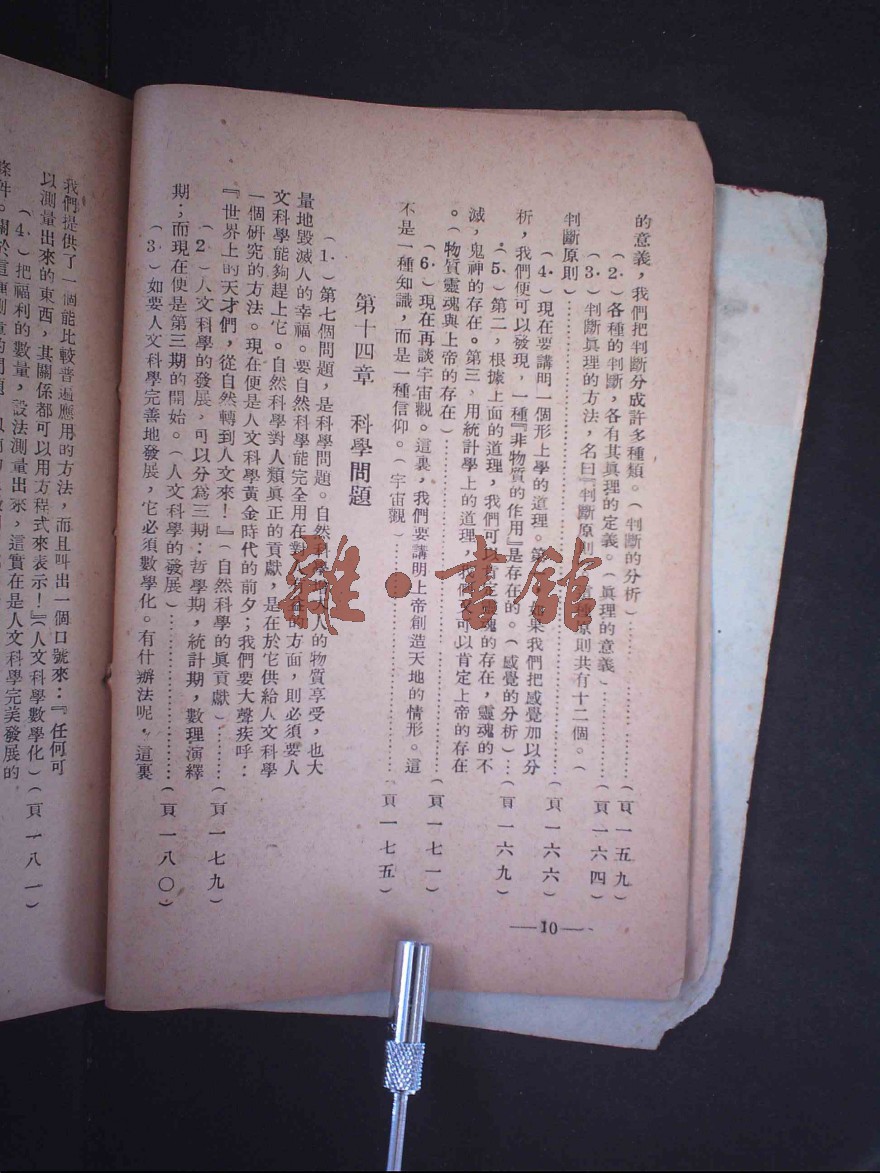 的意義，我們把判斷分成許多種類。（判斷的分析）……（頁一五九）
（2.）各種的判斷，各有其眞理的定義。（眞理的意義）……（頁一六四）
（3.）判斷眞理的方法，名曰『判斷原則』，這種原則共有十二個。（
判斷原則）……（頁一六六）
（4.）現在要講明一個形上學的道理。第一，如果我們把感覺加以分
析，我們便可以發現，一種『非物質的作用』是存在的。（感覺的分析）…（頁一六九）
（5.）第二，根據上面的道理，我們可以肯定靈魂的存在，靈魂的不
滅，鬼神的存在。第三，用統計學上的道理，我們又可以肯定上帝的存在
。（物質靈魂與上帝的存在）……（頁一七一）
（6.）現在再談宇宙觀。這裏，我們要講明上帝創造天地的情形。這
不是一種知識，而是一種信仰。（宇宙觀）……（頁一七五）
第十四章　科學問題
（1.）第七個問題，是科學問題。自然科學增大人的物質享受，也大
量地毀滅人的幸福。要自然科學能完全用在對人有益的方面，則必須要人
文科學能夠趕上它。自然科學對人類眞正的貢獻，是在於它供給人文科學
一個研究的方法。現在便是人文科學黃金時代的前夕；我們要大聲疾呼：
『世界上的天才們，從自然轉到人文來！』（自然科學的眞貢獻）……（頁一七九）
（2）人文科學的發展，可以分爲三期：哲學期，統計期，數理演繹
期；而現在便是第三期的開始。（人文科學的發展）……（頁一八〇）
（3）如要人文科學完善地發展，它必須數學化。有什辦法呢，這裏
我們提供了一個能比較普遍應用的方法，而且叫出一個口號來：『任何可
以測量出來的東西，其關係都可以用方程式來表示！』（人文科學數學化）（頁一八一）
（4.）把福利的數量，設法測量出來，這實在是人文科學完美發展的
條件。關於這
—10—
雜·書館